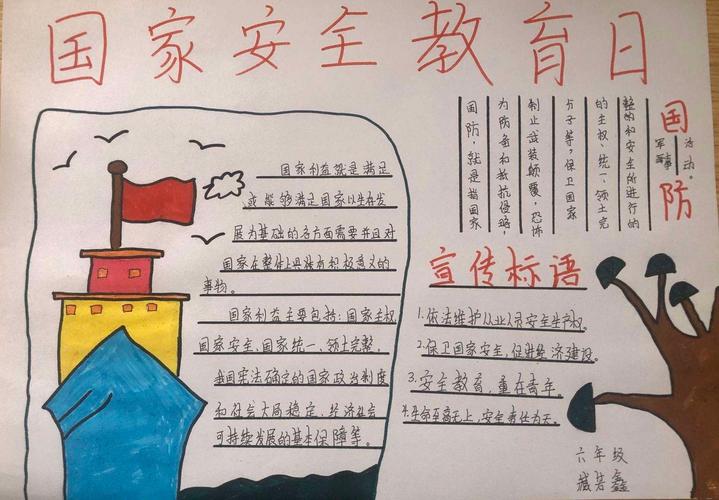 国家安全教育日
国家利益就是满足
或能够满足国家以生存发
展为基础的各方面需要并且对
国家在整体上具有积极意义的
事物。
国家利益主要包括:国家主权
国家安全、国家统一、领土完整、
我国宪法确定的国家政治制度
和社会大局稳定、经济社会
可持续发展的基本保障等。
国防
国防,就是指国家
为防备和抵抗侵略,
制止武装颠覆,恐怖
分子等,保卫国家
的主权、统一、领土完
整的和安全所进行的
军事
活动。
宣传标语
1.依法维护从业人员安全生产权。
2.保卫国家安全,促进经济建设。
3.安全教育,重在青年。
4.生命至高无上,安全责任为天。
六年级